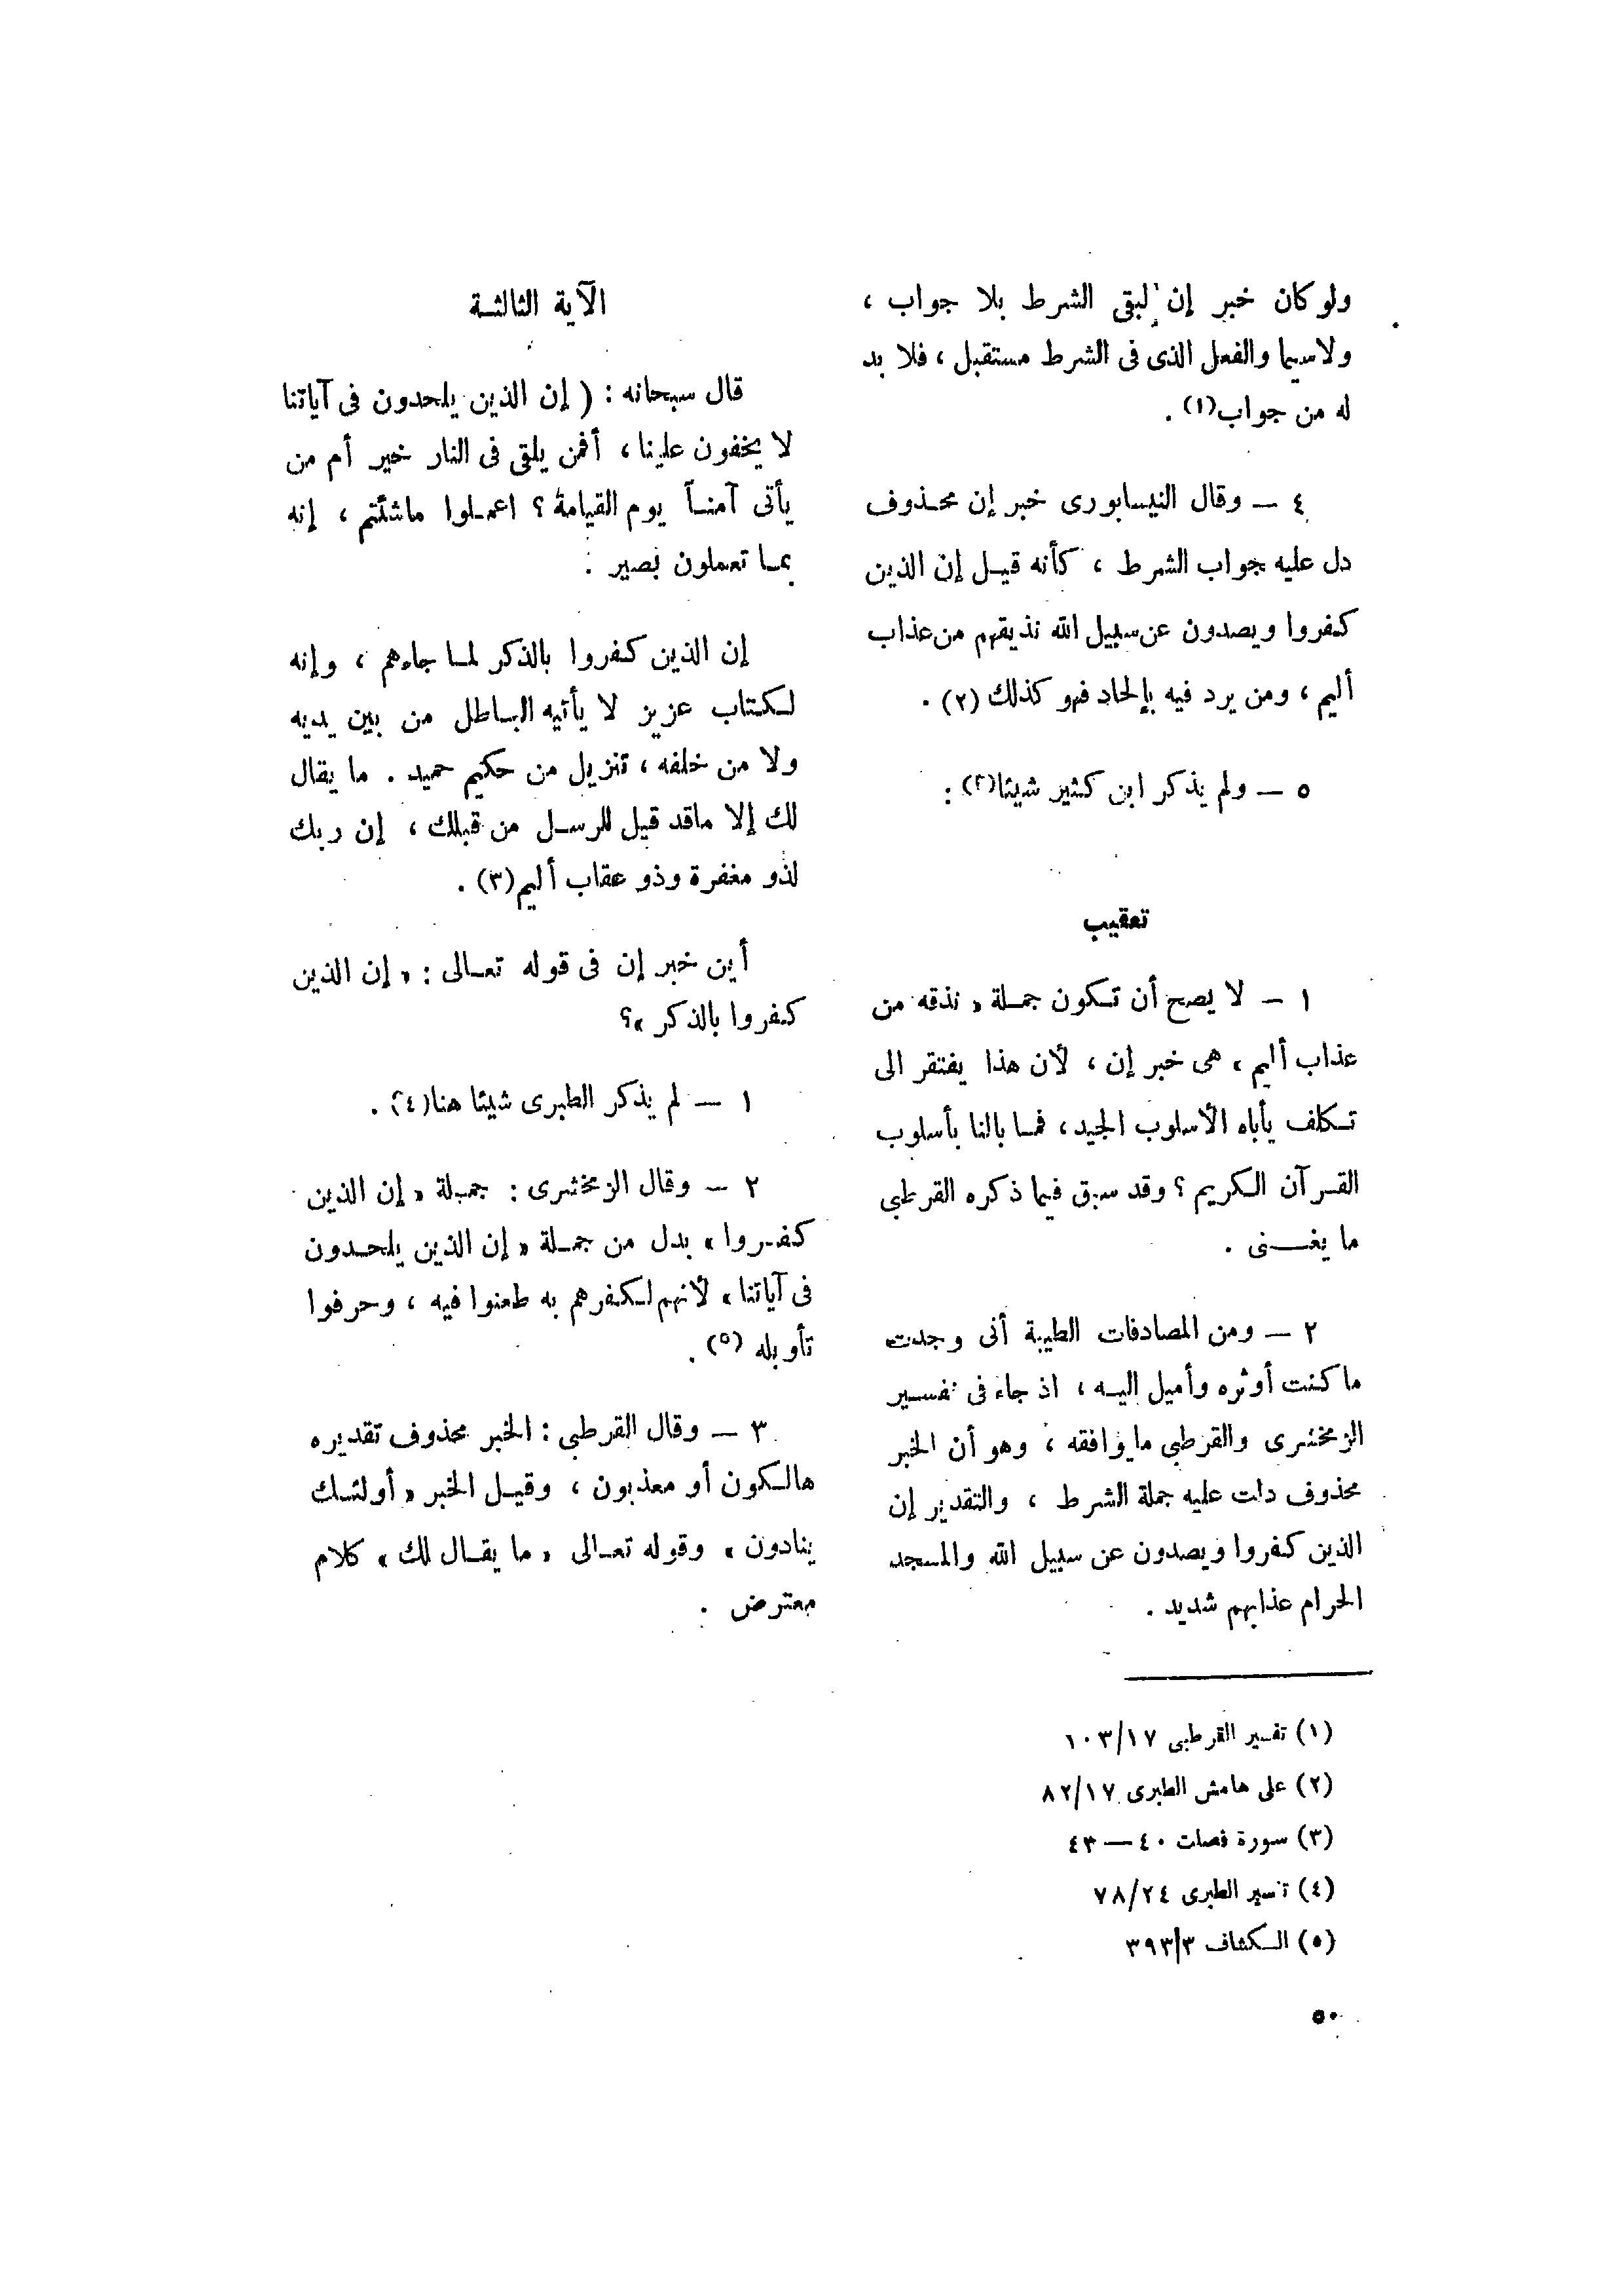 ولو كان خبر إن لبقى الشرط بلا جواب ،
ولاسيما والفعل الذى فى الشرط مستقبل ، فلا بد
له من جواب(١) .
٤ — وقال النيسابورى خبر إن محذوف
دل عليه جواب الشرط ، كأنه قيل إن الذين
كفروا ويصدون عن سبيل الله نذيقهم من عذاب
أليم ، ومن يرد فيه بإلحاد فهو كذلك (٢) .
٥ — ولم يذكر ابن كثير شيئا(٢) :
تعقيب
١ — لا يصح أن تكون جملة « نذقه من
عذاب أليم » هى خبر إن ، لأن هذا يفتقر الى
تكلف يأباه الأسلوب الجيد ، فما بالنا بأسلوب
القرآن الكريم ؟ وقد سبق فيما ذكره القرطبي
ما يغنى .
٢ — ومن المصادفات الطيبة أنى وجدت
ما كنت أوثره وأميل اليه ، اذ جاء فى تفسير
الزمخشرى والقرطبى ما يوافقه ، وهو أن الخبر
محذوف دلت عليه جملة الشرط ، والتقدير إن
الذين كفروا ويصدون عن سبيل الله والمسجد
الحرام عذابهم شديد .
(١) تفسير القرطبى ١٠٣/١٧
(٢) على هامش الطبرى ٨٢/١٧
(٣) سورة فصلت ٤٠ — ٤٣
(٤) تفسير الطبرى ٧٨/٢٤
(٥) الكشاف ٣٩٣/٣
٥٠
الآية الثالثة
قال سبحانه : ( إن الذين يلحدون فى آياتنا
لا يخفون علينا ، أفمن يلقى فى النار خير أم من
يأتى آمناً يوم القيامة ؟ اعملوا ماشئتم ، إنه
بما تعملون بصير .
إن الذين كفروا بالذكر لما جاءهم ، وإنه
لكتاب عزيز لا يأتيه الباطل من بين يديه
ولا من خلفه ، تنزيل من حكيم حميد . ما يقال
لك إلا ماقد قيل للرسل من قبلك ، إن ربك
لذو مغفرة وذو عقاب أليم(٣) .
أين خبر إن فى قوله تعالى : « إن الذين
كفروا بالذكر »؟
١ — لم يذكر الطبرى شيئا هنا(٤) .
٢ — وقال الزمخشرى : جملة « إن الذين
كفروا » بدل من جملة « إن الذين يلحدون
فى آياتنا » لأنهم لكفرهم به طعنوا فيه ، وحرفوا
تأويله (٥) .
٣ — وقال القرطبى : الخبر محذوف تقديره
هالكون أو معذبون ، وقيل الخبر « أولئك
ينادون » وقوله تعالى « ما يقال لك » كلام
معترض .